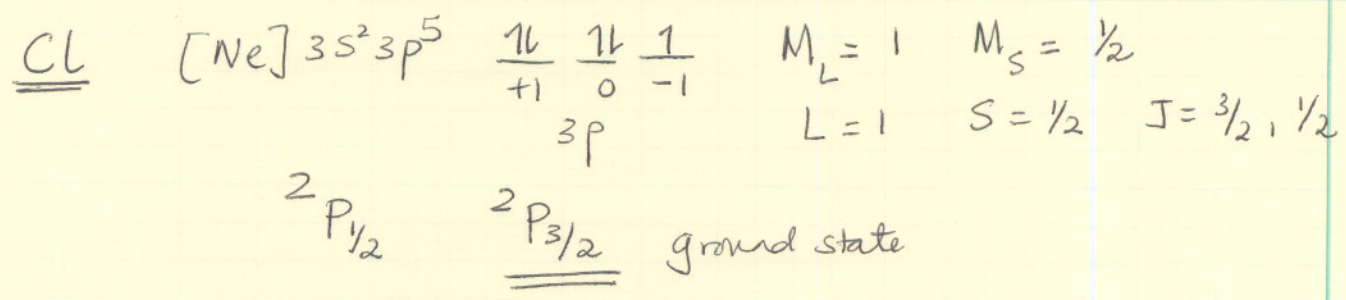 Cl [Ne] 3s² 3p⁵ 1l 1l 1 M_L = 1 M_S = ½
+1 0 -1
3p L = 1 S = ½ J = 3/2, ½
²P₁/₂ ²P₃/₂ ground state